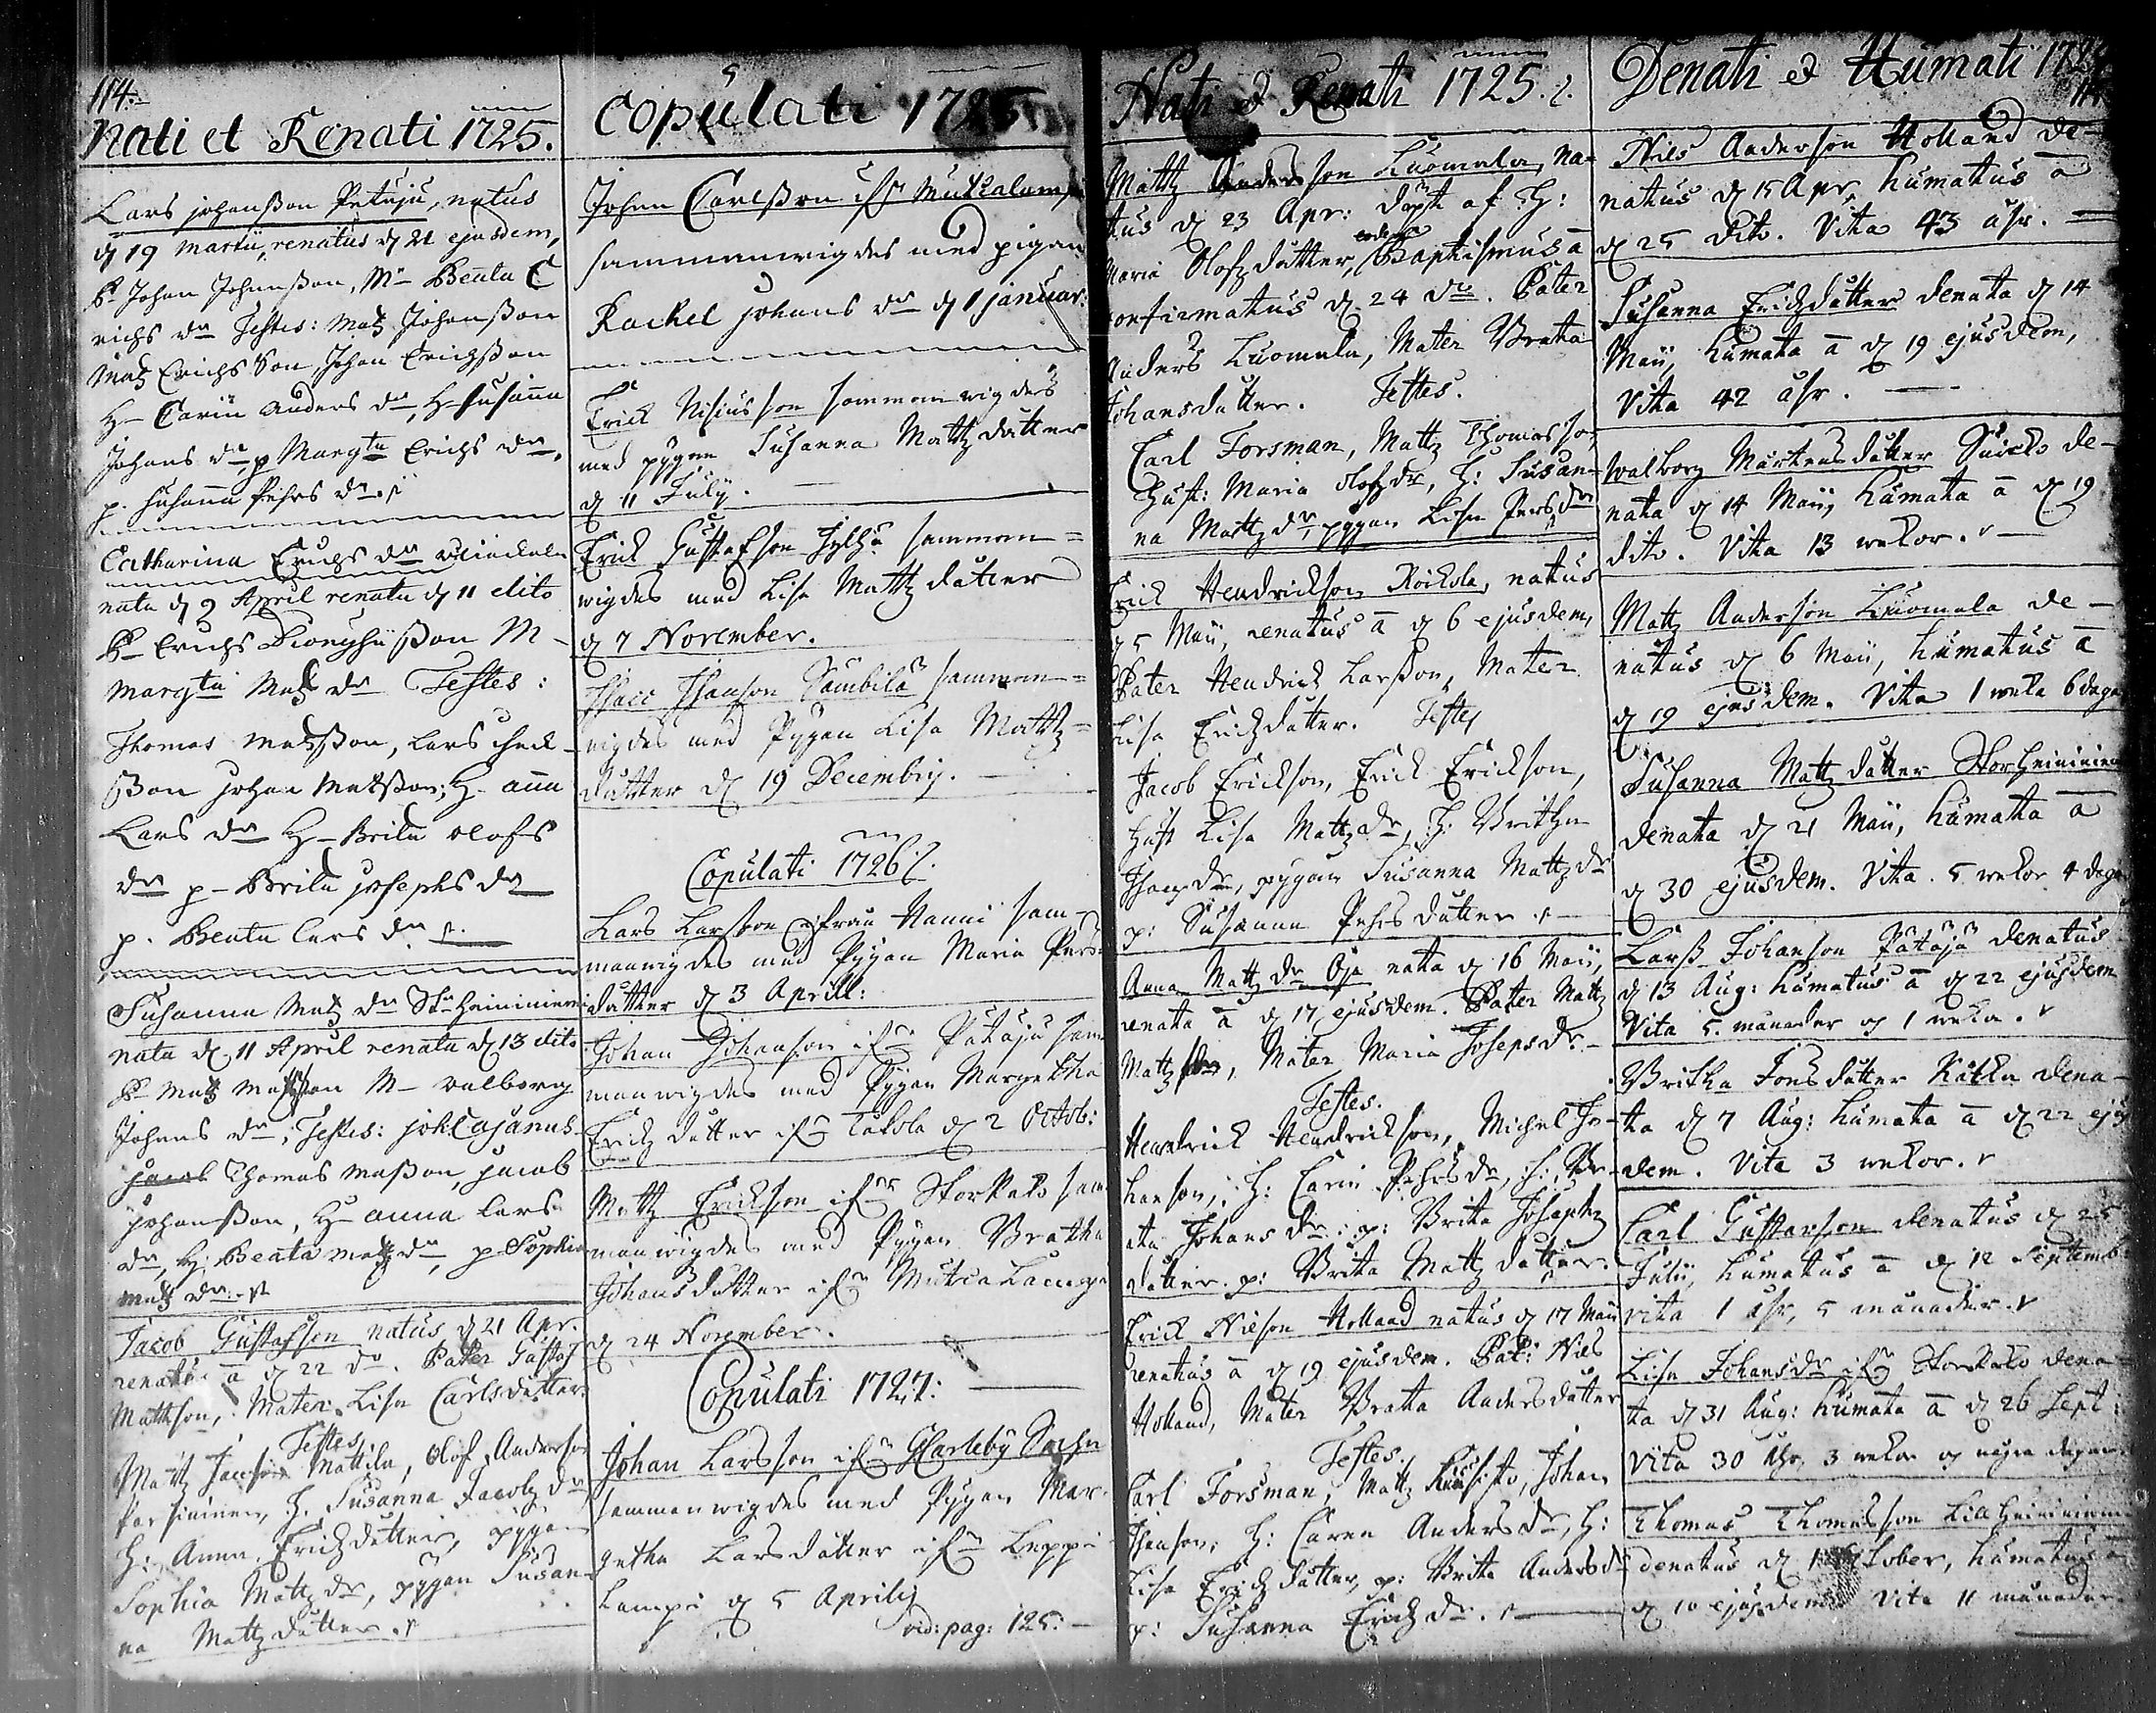 114.
Nati et Renati 1725.
Lars johanßon Petäjä, natus
d 19 martii, renatus d 21 ejusdem,
P. Johan Johanßon, M. Beata E
richs dr Testes: Matz Johanßon
Matz Erichs Son, Johan Erichßon
H. Carin anders dr, H. Susanna
Johans dr, p Margta Erichs dr,
p. Susanna Pehrs dr.
Catharina Erichs dr
nata d 9 April renata d 11 dito
P. Erich Dionysiißon M.
Margta Matz dr Testes:
Thomas Matzßon, Lars
ßon Johan Matzßon; H. anna
Lars dr H. Brita olofs
dr p. Brita josephs dr
p. Beata lars dr
Susanna Matz dr St. Heininiemi
nata d 11 April renata d 13 dito
P. Matz Matzßon M. valborg
Johans dr; Testes: joh: Cajanus
Thomas Maßon, jacob
johanßon, H. anna lars
dr, H: Beata matz dr, p. Sophia
matz dr.
Jacob Gustafson natus d 21 Apr.
renatus a d 22 do. Pater Gustaf
Mattson, Mater Lisa Carlsdotter
Testes
Mattz Mattila, Olof Anderson
H. Susanna Jacobz dr
H: Anna Erichdotter, pygan
Sophia Mattz dr, pygan Susan-
na Mattz dotter.
Copulati 1725
Johan Carlßon ifr Mutkalamp
sammanwigdes med pigan
Rachel johans dr d 1 januar:
Erick Nisius son sammanwigdes
med pygan Susanna Mattzdotter
d 11 Julij.
Erick Gustafson Jylhä samman=
wigdes med Lisa Mattz dotter
d 7 November.
Isacc Isacson Sämbilä samman=
wigdes med Pygan Lisa Mattz=
dotter d 19 Decembrij.
Copulati 1726.
Lars Larßon ifrån Nanni sam-
manwigdes med Pygan Maria Pers
dotter d 3 Aprill:
Johan Johanson ifr Pätäjä sam
manwigdes med Pygan Margetha
Erichdotter ifr Takola d 2 Octob:
Mattz Erickson ifr Storkako sam
manwigdes med Pygan Bratha
Johansdotter ifr Mutcalampi
d 24 November.
Copulati 1727:
Johan Larsson ifr Gl Carleby Sochn
sammanwigdes med Pygan Mar-
getha Larsdotter ifr Leppi
Lampi d 5 Aprilij
vid: pag: 125.
Nati et Renati 1725.
Mattz Anderson Luomala, na-
tus d 23 Apr: döpt af H:
Maria Olofzdotter, Baptismus a
confirmatus d 24 do. Pater
Anders Luomala, Mater Bratha
Johansdotter. Testes.
Carl Forsman, Mattz Thomasso,
Hust: Maria Olofz dr, H: Susan-
na Mattz dr, pygan Lisa Pers dr
Erick Hendrickson Köikola, natus
d 5 Maij, renatus a d 6 ejusdem,
Pater Hendrick Larßon, Mater
Lisa Erichdotter. Testes
Jacob Erickson, Erick Erickson,
Hust Lisa Mattz dr, H: Britha
Isacz dr, pygan Susanna Mattz dr
p: Susanna Pehrs dotter
Anna Mattz dr Öja nata d 16 Maij,
renata a d 17 ejusdem. Pater Mattz
Mattz son, Mater Maria Joseps dr.
Testes.
Hendrick Hendrickson, Michel Jo-
hanson, H: Carin Pehrs dr, H: Be-
ata Johans dr: p: Brita Josephz
dotter. p: Brita Mattz dotter.
Erick Nilson Holland natus d 17 Maij
renatus a d 19 ejusdem. Pat: Niels
Holland, Mater Bratha Andersdotter
Testes.
Carl Forsman, Mattz Kuusisto, Johan
H: Caren Anders dr, H:
Lisa Erichdotter, p: Brita Anders dr
p: Susanna Erich dr.
Denati et Humati 1725
Niels Anderson Holland de-
natus d 15 Apr, humatus a
d 25 dito. Vita 43 åhr.
Susanna Erichdotter denata d 14
Maij, humata a d 19 ejusdem,
Vita 42 åhr.
Walborg Mårtens dotter Snicko de-
nata d 14 Maij, humata a d 19
dito. Vita 13 wekor.
Mattz Anderson Luomala de-
natus d 6 Maij, humatus a
d 19 ejusdem. Vita 1 weka 6 dagar
Susanna Mattz dotter Storheiniemi
denata d 21 Maij, humata a
d 30 ejusdem. Vita 5 wekor 4 dagar
Larß Johanson Pätäjä denatus
d 13 Aug: humatus a d 22 ejusdem
Vita 5. månader og 1 weka.
Britha Jonsdotter Kätka dena-
ta d 7 Aug: humata a d 22 ejus
dem. Vita 3 wekor.
Carl Gustavson denatus d 25
Julii, humatus a d 12 Septemb
vita 1 åhr, 5 månader.
Lisa Johans dr ifr Storkako dena-
ta d 31 Aug: humata a d 26 Sept:
Vita 30 åhr, 3 wekor og några dagar
Thomas Thomasson Lillheiniemi
denatus d October, humatus a
d 10 ejusdem Vita 11 månader.